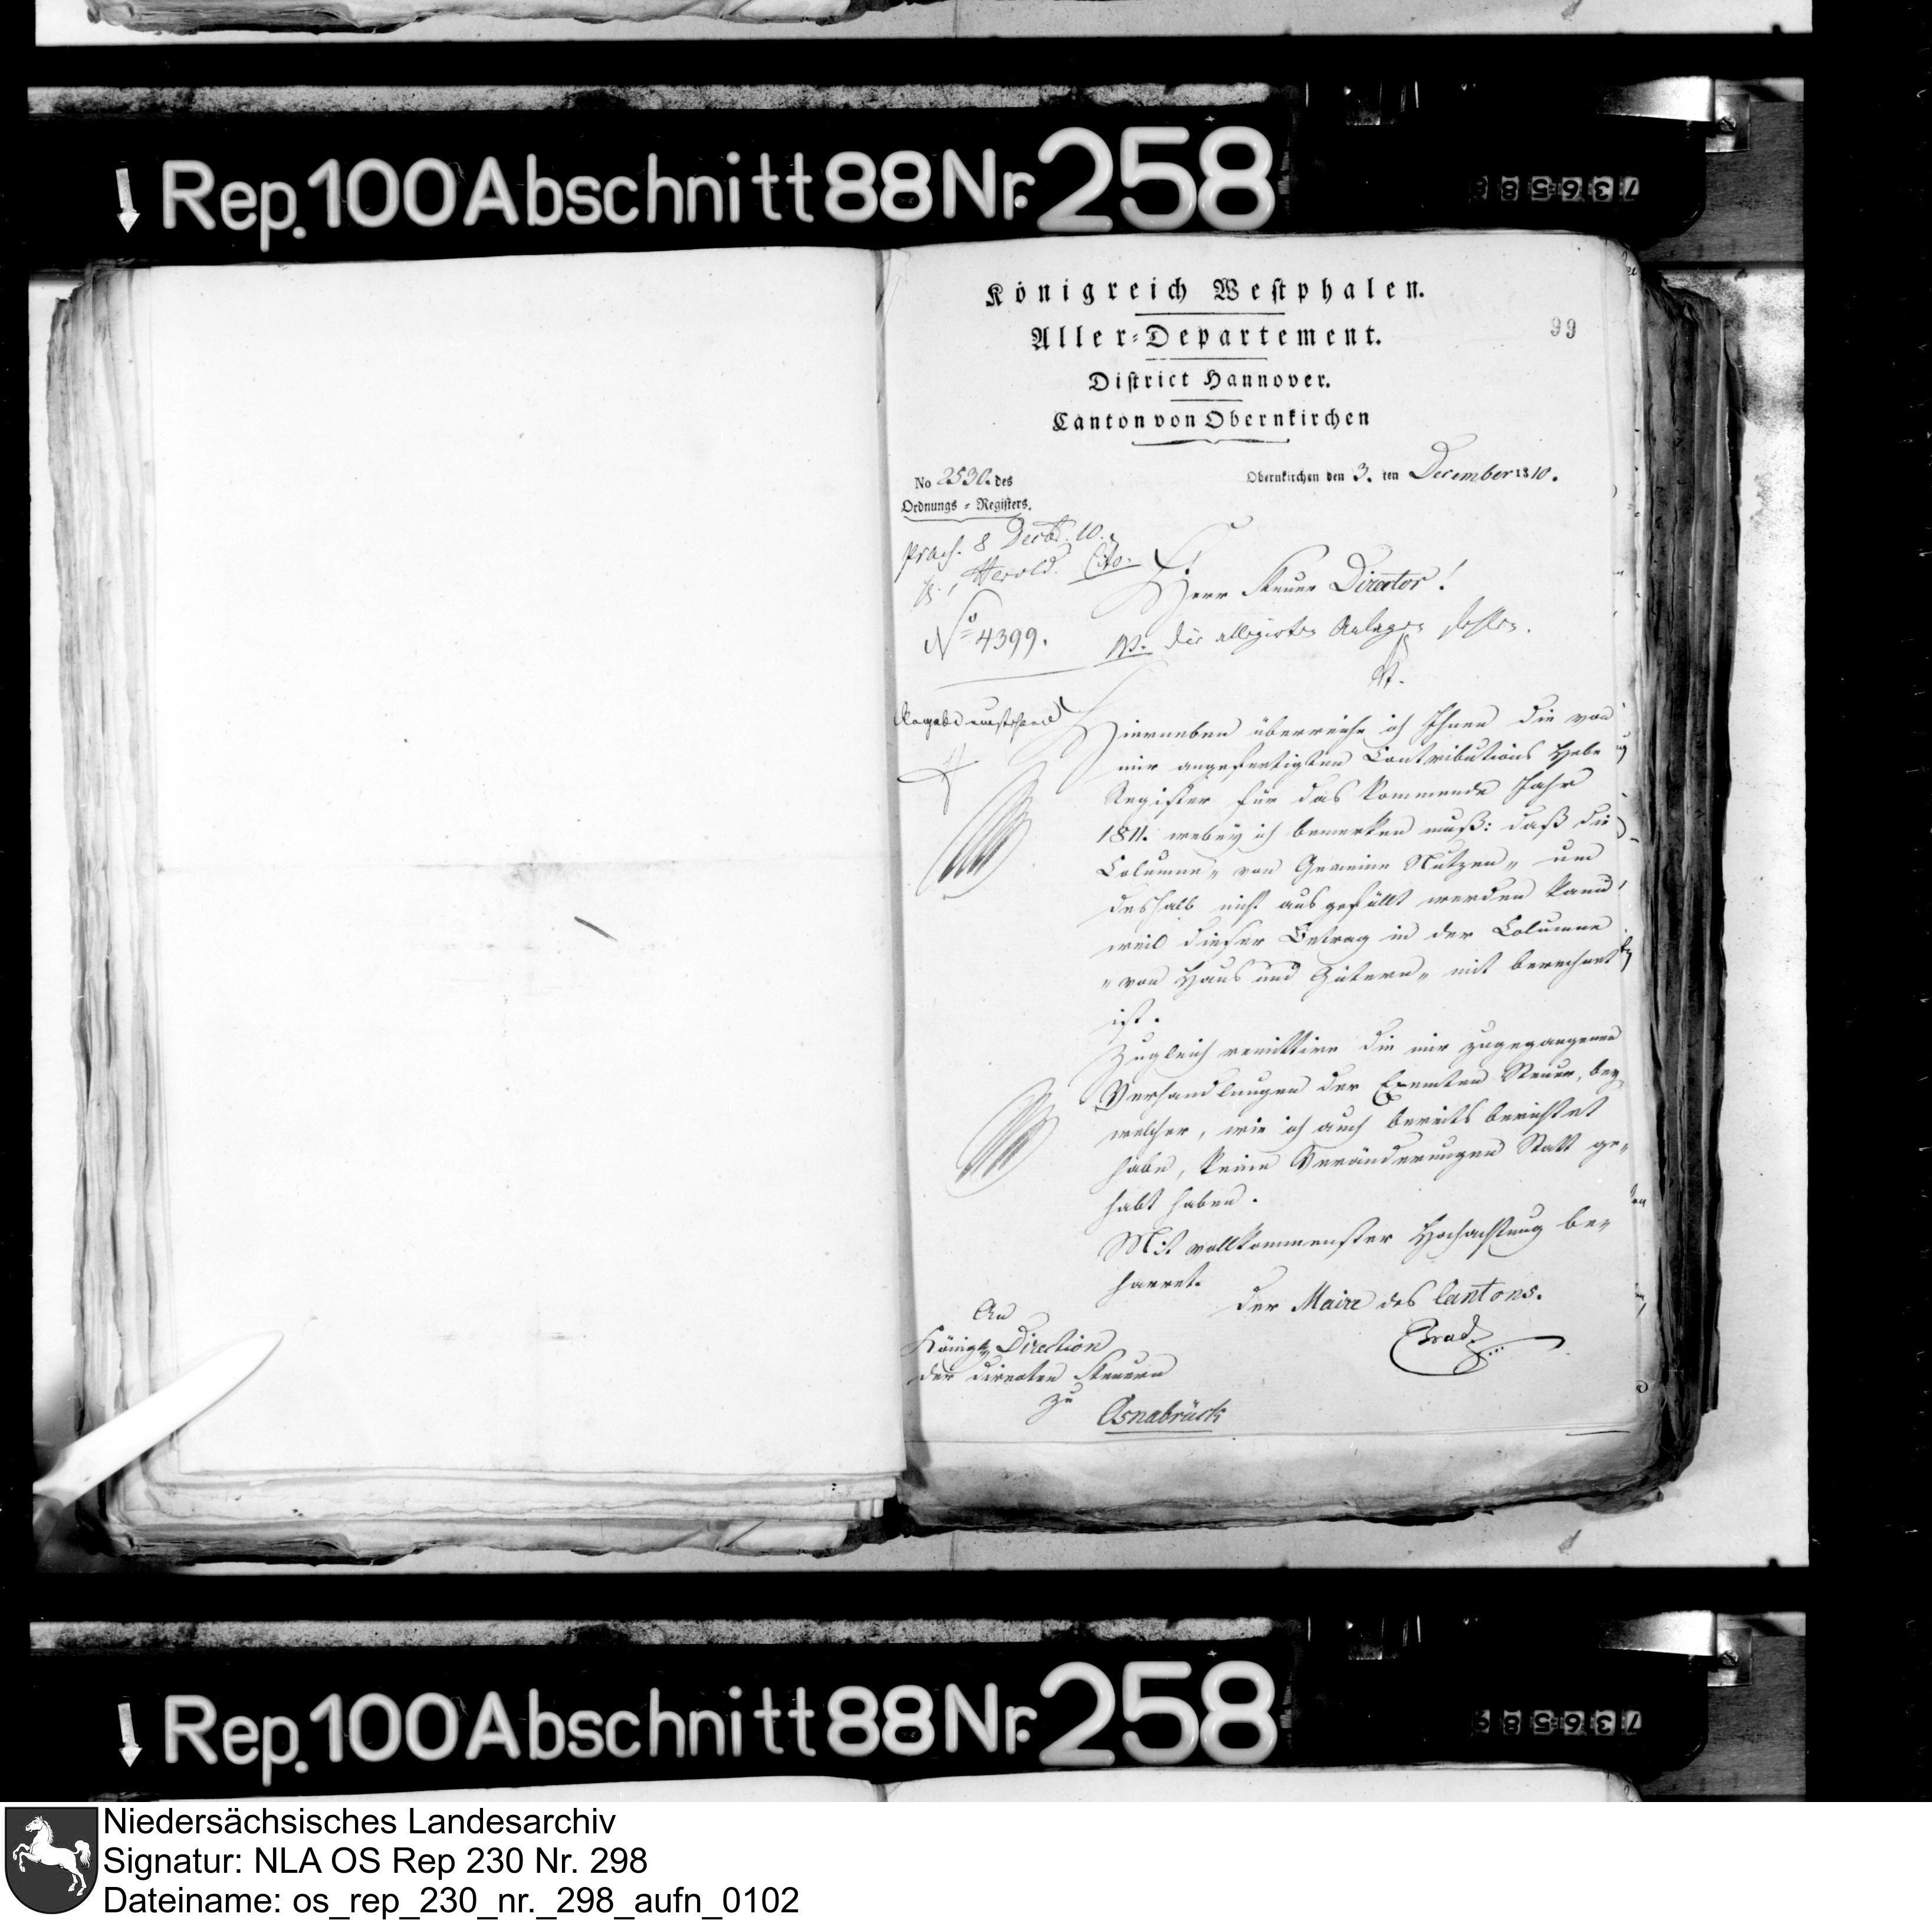 Rep. 100 Abschnitt 88 Nr. 258
736588
Königreich Westphalen.
Aller-Departement.
99
District Hannover.
Canton von Obernkirchen
No 2530. des
Ordnungs-Registers.
Obernkirchen den 3. ten December 1810.
praes. 8 Decbr. 10.
Herold. Cito.
Herr Steuer Director!
No 4399.
NB. die allegirten Anlagen fehlen.
Hierneben überreiche ich Ihnen die von
mir angefertigten Contributions Hebe
Register für das kommende Jahr
1811. wobey ich bemerken muß: daß die
Columne „von Gemeine Nutzen„ um
deshalb nicht ausgefüllt werden kann
weil dieser Betrag in der Columne
„von Haus und Gütern„ mit berechnet
ist.
Zugleich remittire die mir zugegangenen
Verhandlungen der Exemten Steuer, bey
welcher, wie ich auch bereits berichtet
habe, keine Veränderungen Statt ge-
habt haben.
Mit vollkommenster Hochachtung be-
harret.
der Maire des Cantons.
An
Königl. Direction
der directen Steuern
zu
Osnabrück
Rep. 100 Abschnitt 88 Nr. 258
736589
Niedersächsisches Landesarchiv
Signatur: NLA OS Rep 230 Nr. 298
Dateiname: os_rep_230_nr._298_aufn_0102